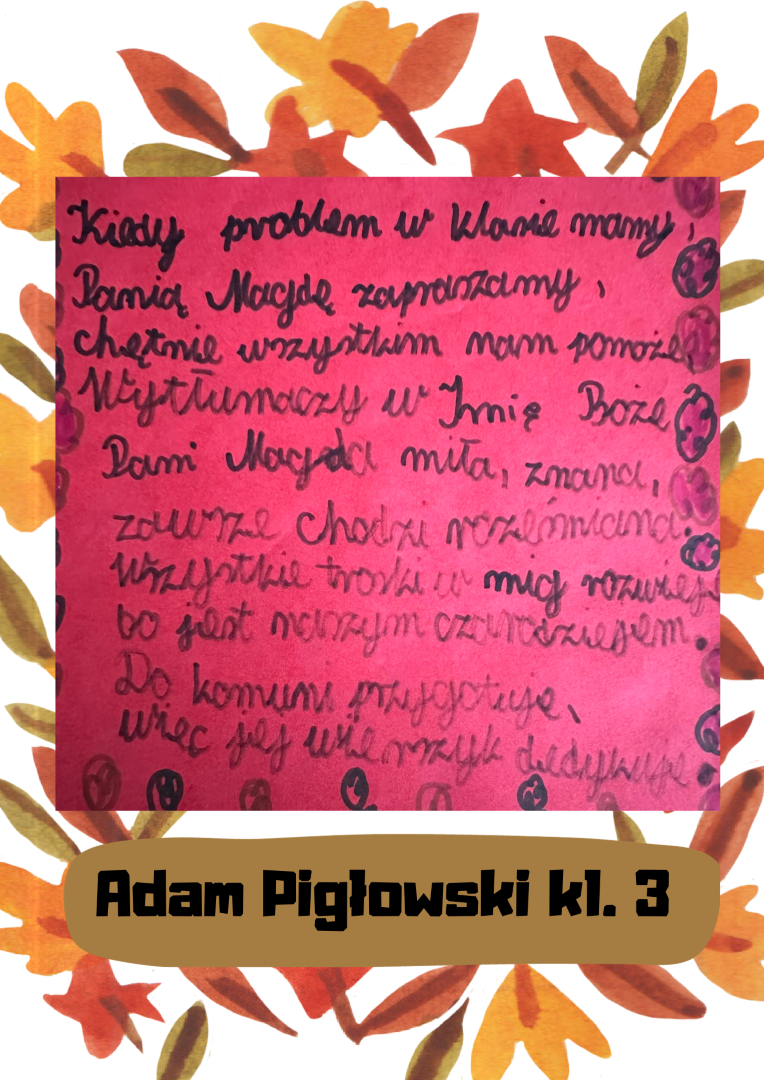 Kiedy problem w klasie mamy,
Panią Magdę zapraszamy,
chętnie wszystkim nam pomoże,
Wytłumaczy w Imię Boże
Pani Magda miła, znana,
zawsze chodzi roześmiana.
Wszystkie troski w mig rozwieje
bo jest naszym czarodziejem.
Do komuni przygotuje,
więc jej wierszyk dedykuje.
Adam Pigłowski kl. 3